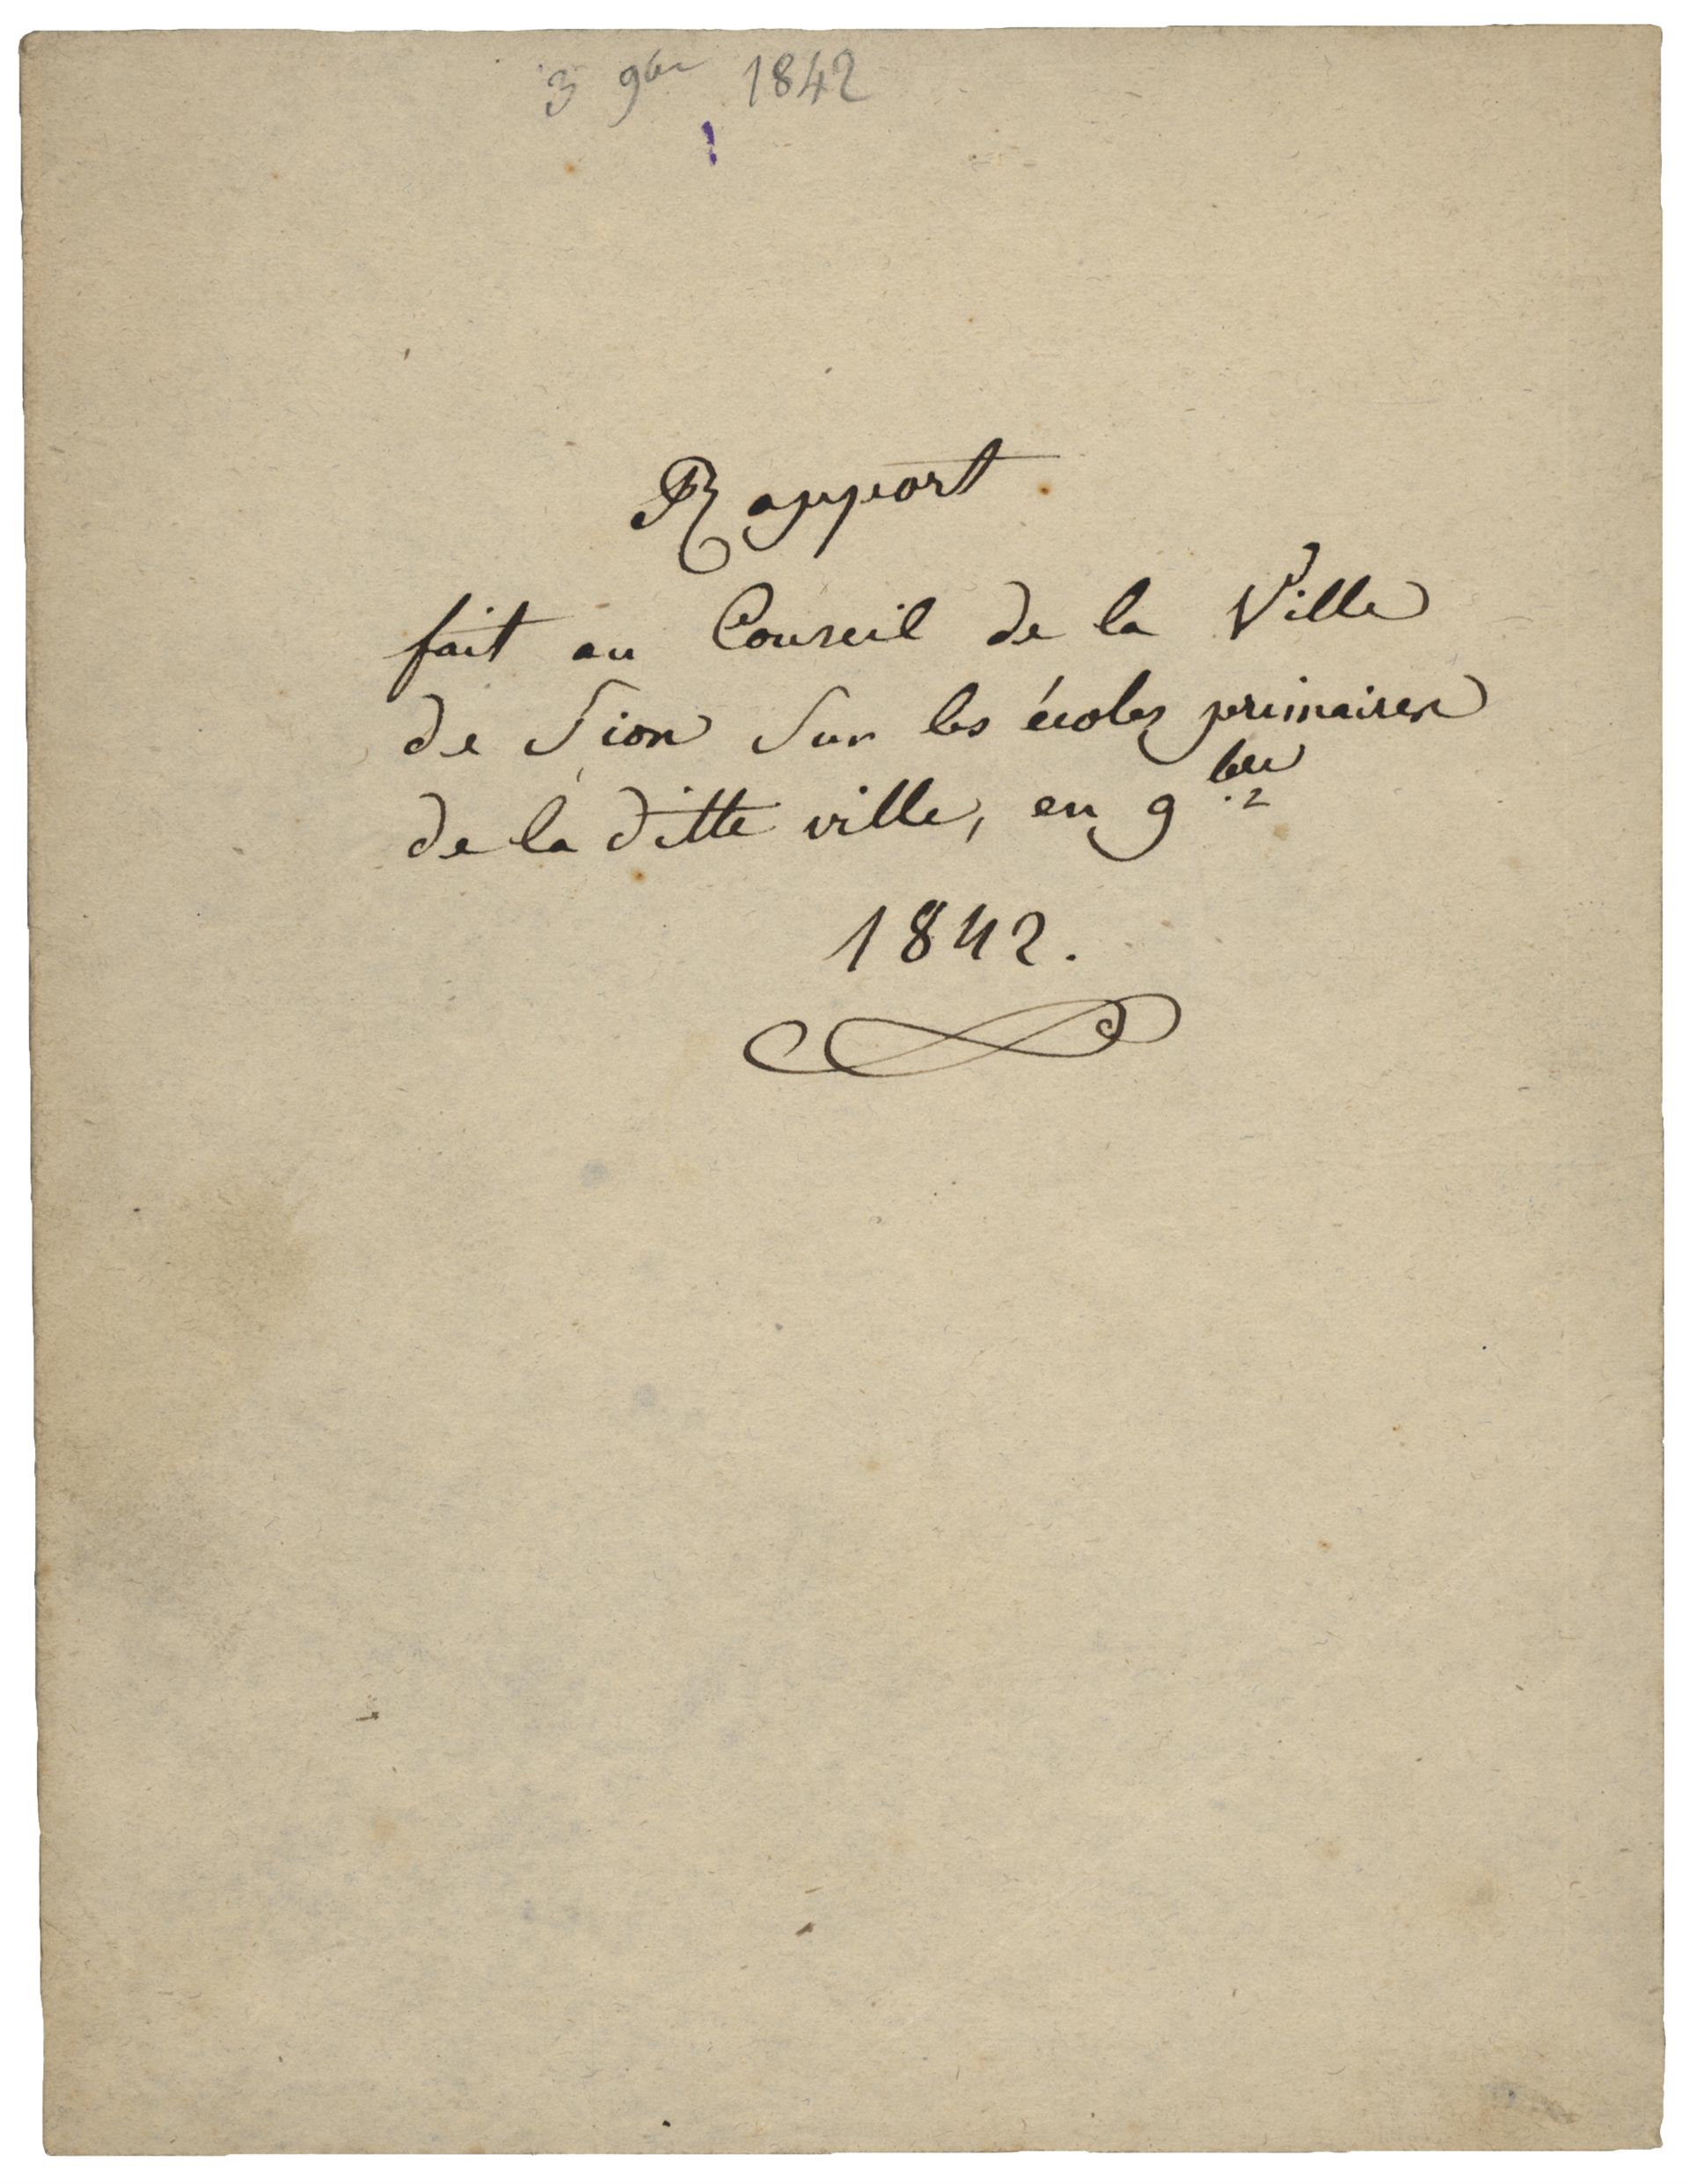 3 9bre 1842
Rapport
fait au Conseil de la Ville
de Sion Sur les écoles primaires
de la ditte ville, en 9bre
1842.